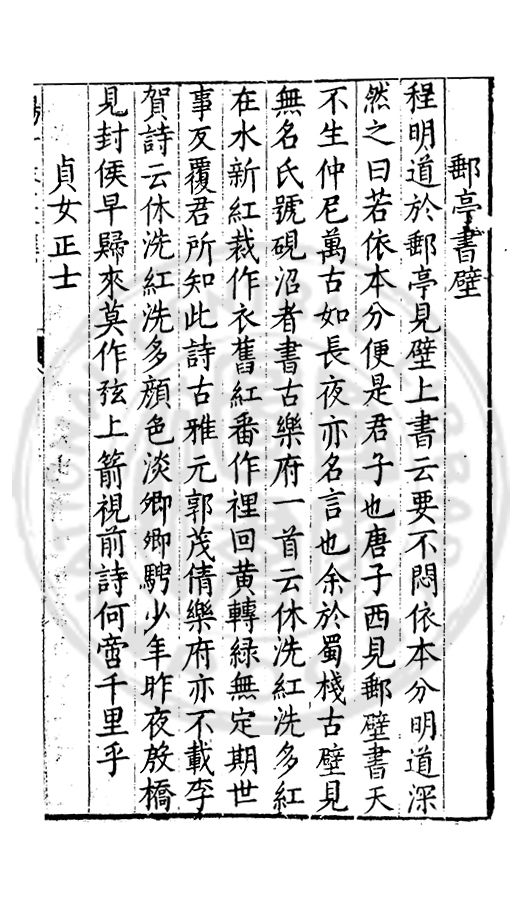 郵亭書壁
程明道於郵亭見壁上書云要不悶依本分明道深
然之曰若依本分便是君子也唐子西見郵壁書天
不生仲尼萬古如長夜亦名言也余於蜀棧古壁見
無名氏號硯沼者書古樂府一首云休洗紅洗多紅
在水新紅裁作衣舊紅番作裡回黄轉緑無定期世
事反覆君所知此詩古雅元郭茂倩樂府亦不載李
賀詩云休洗紅洗多顔色淡卿卿騁少年昨夜殷橋
見封侯早歸來莫作弦上箭視前詩何啻千里乎
貞女正士